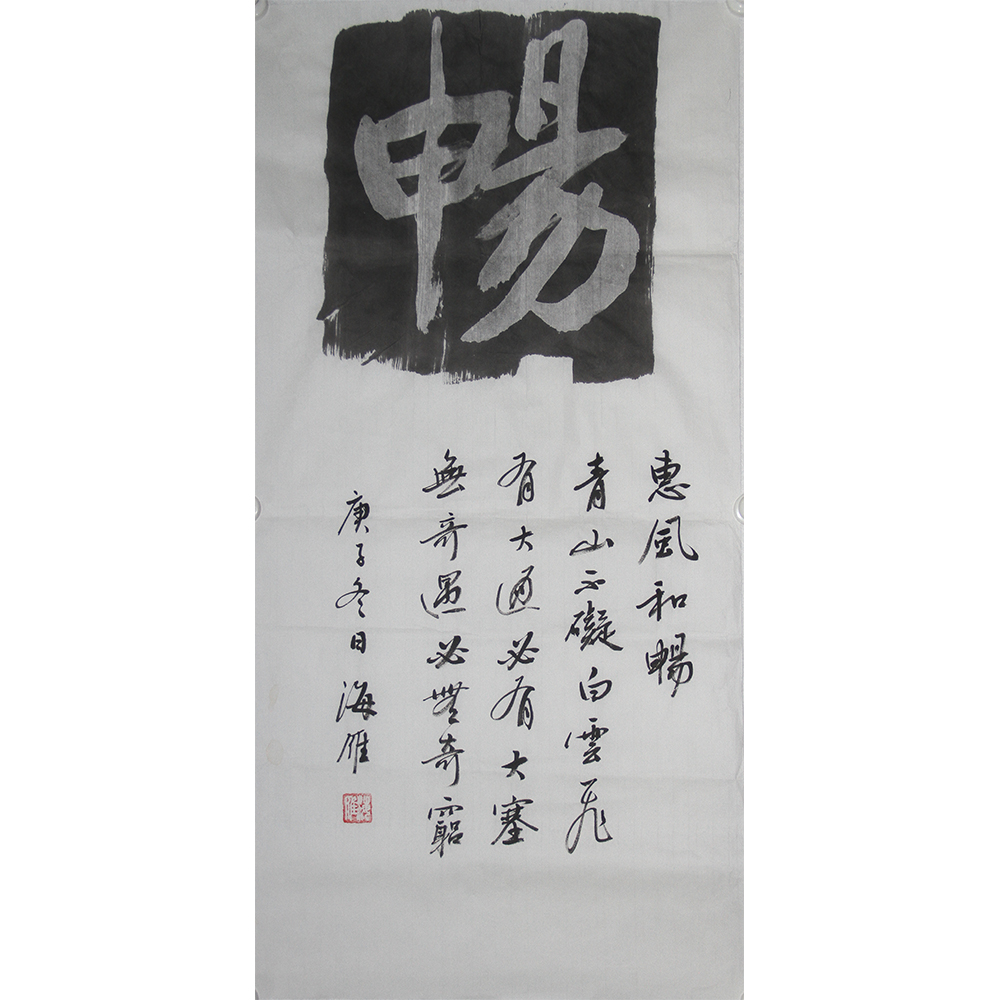 暢
惠風和暢
青山不礙白雲飛
有大通必有大塞
無奇遇必無奇窮
庚子冬日海雁